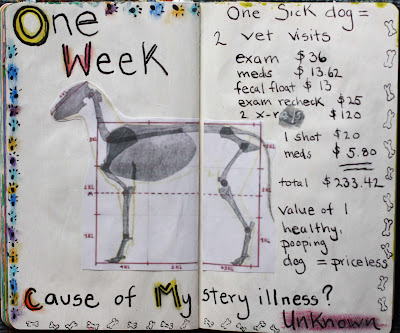 One
Week
One Sick dog =
2 vet visits
exam $36
meds $13.62
fecal float $13
exam recheck $25
$120
1 shot $20
meds $5.80
total $233.42
value of 1
healthy,
pooping
dog = priceless
Cause of Mystery illness?
Unknown